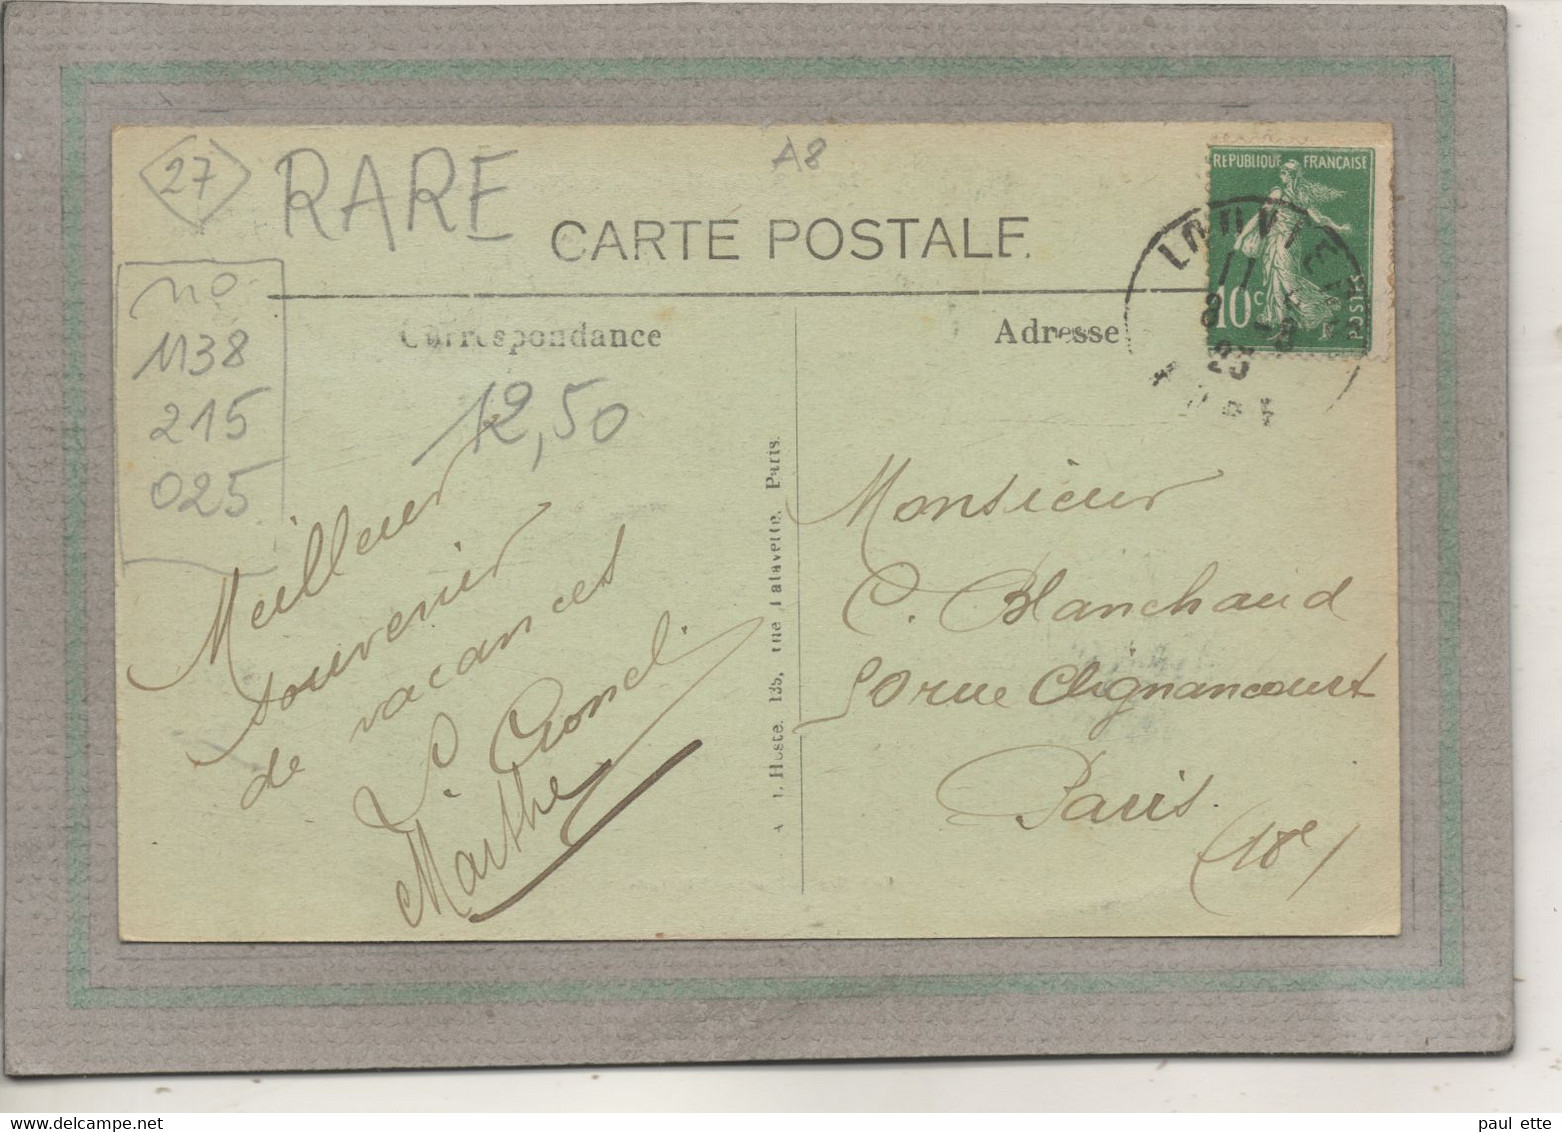 27
RARE
A8
CARTE POSTALE
RÉPUBLIQUE FRANÇAISE
10c
LOUVIE
11
8 -8
25
Correspondance
Adresse
no
1138
215
025
12,50
Meilleur
souvenir
de vacances
Marthe
135, rue Lafayette, Paris.
Monsieur
C. Blanchaud
50 rue Clignancourt
Paris.
(18e)
paul ette